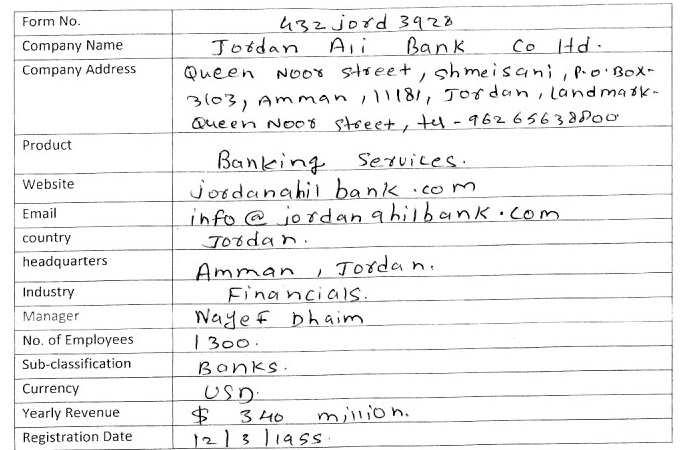 Form No. 432 jord 3928
Company Name Jordan Ali Bank Co ltd.
Company Address Queen Noor street, shmeisani, P.O.Box-
3103, Amman, 11181, Jordan, landmark-
Queen Noor street, tel - 962 65638800
Product Banking Services.
Website jordanahil bank.com
Email info@jordanahilbank.com
country Jordan.
headquarters Amman, Jordan.
Industry Financials.
Manager Nayef Dhaim
No. of Employees 1300.
Sub-classification Banks.
Currency USD.
Yearly Revenue $ 340 million.
Registration Date 12/3/1955.